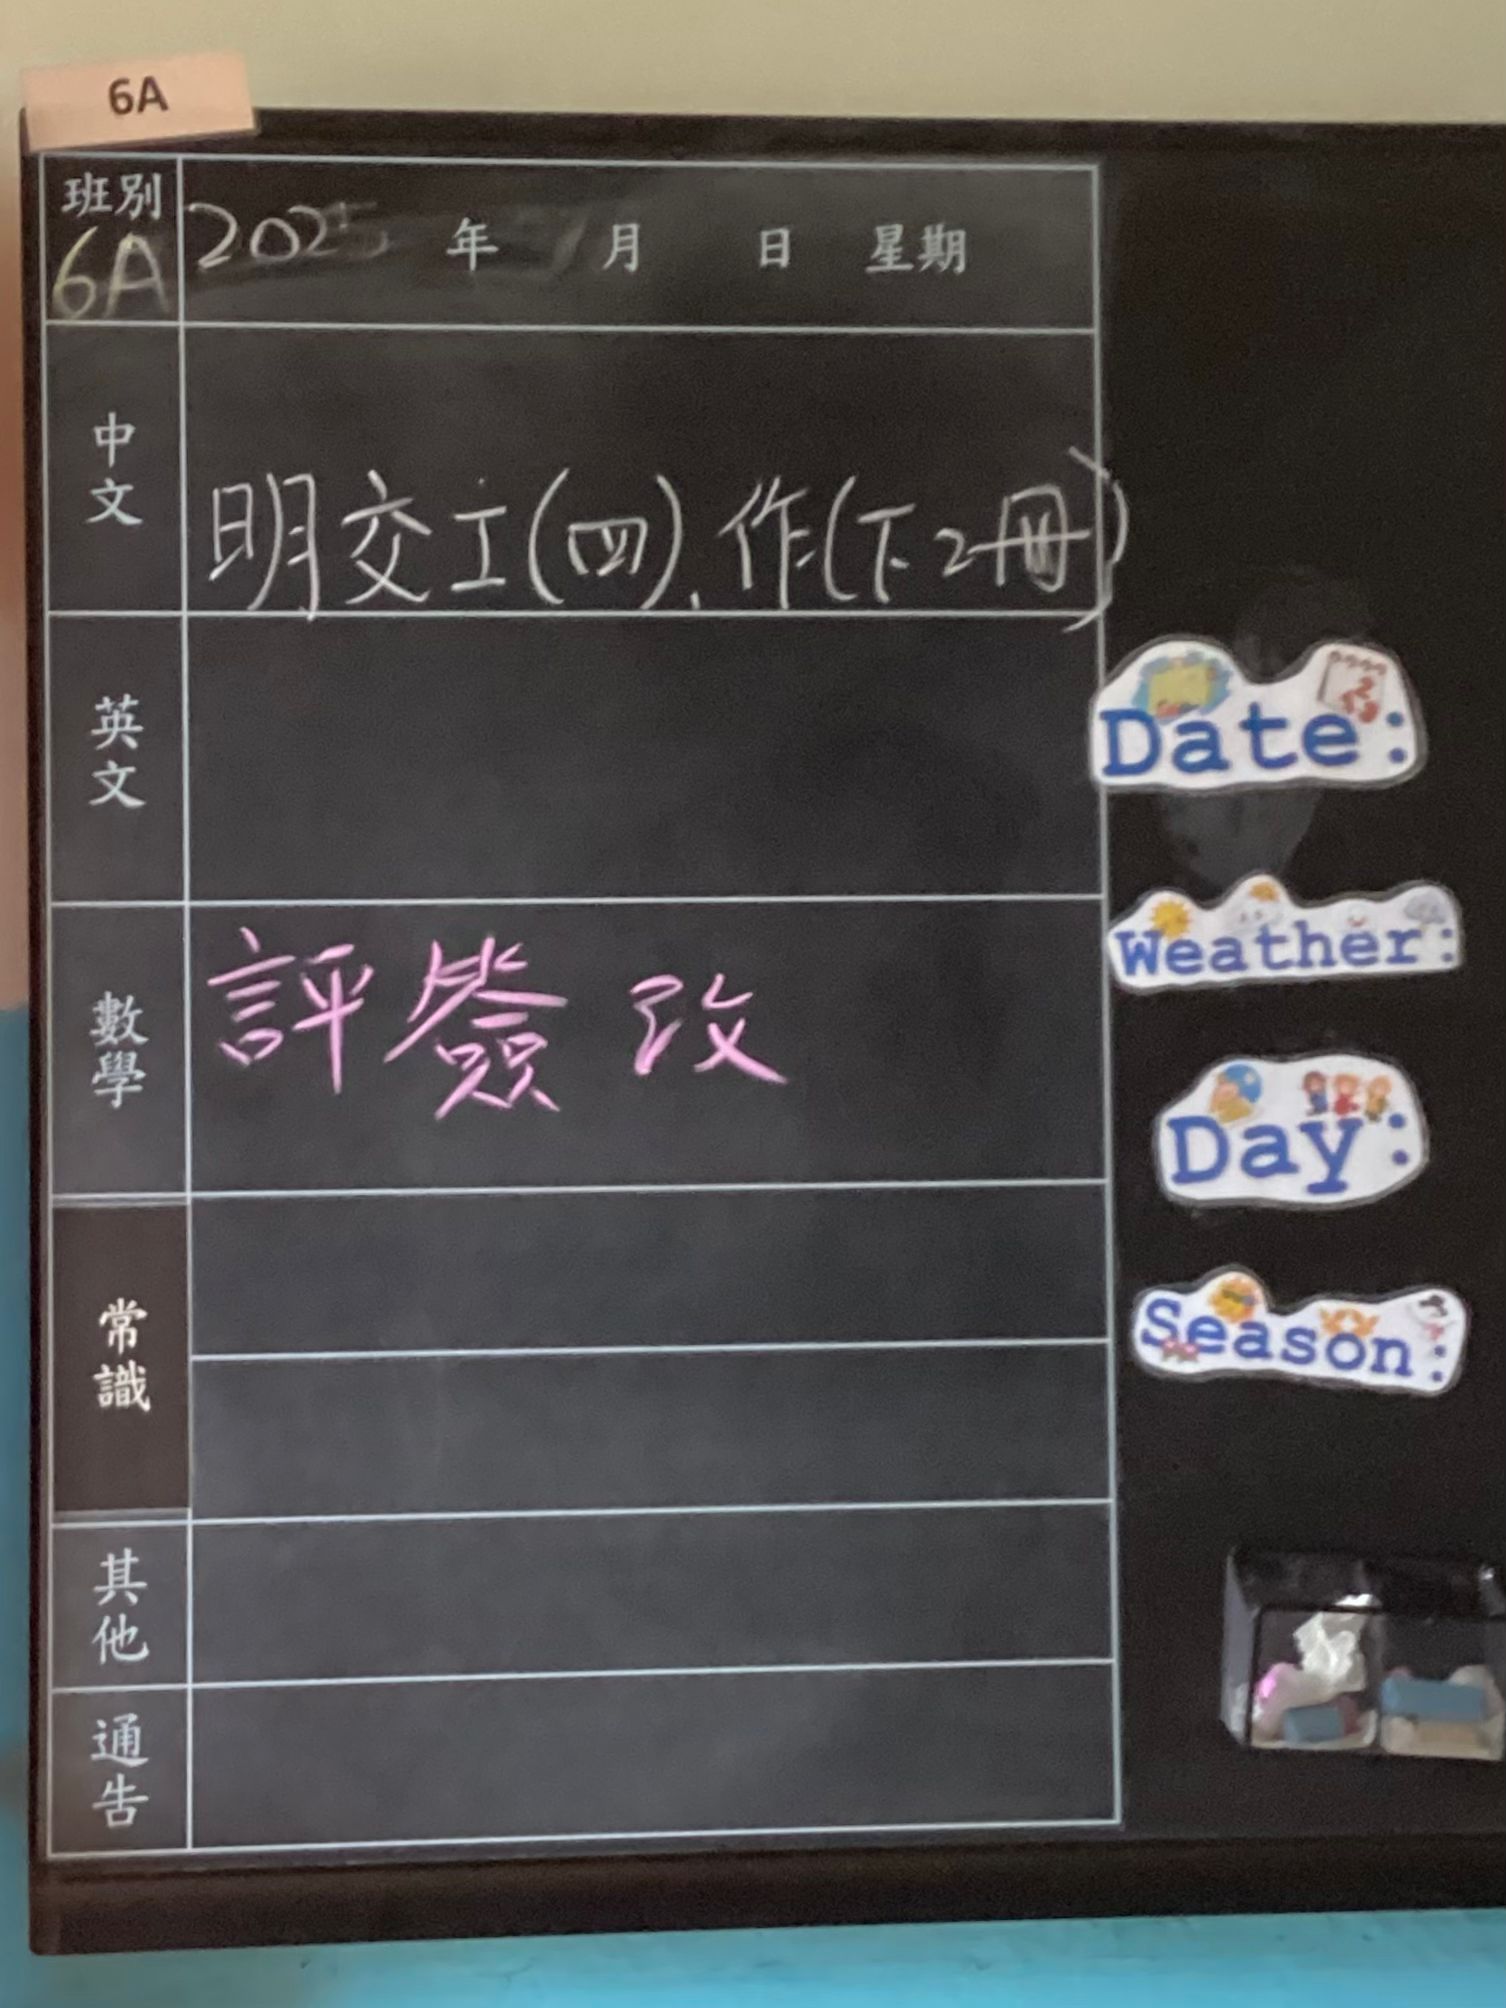 6A
班別
6A
2025 年 月 日 星期
中文
明交工(四), 作(下2冊)
英文
數學
評簽改
常識
其他
通告
Date:
Weather:
Day:
Season: